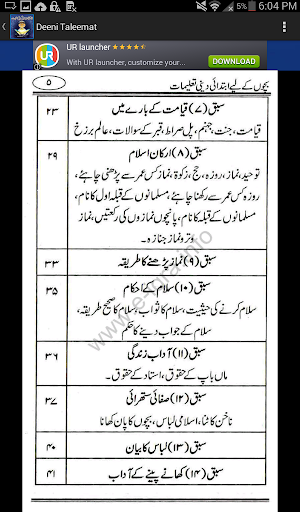 6:04 PM
Deeni Taleemat
UR launcher
With UR launcher, customize your...
DOWNLOAD
بچوں کے لیے ابتدائی دینی تعلیمات
۵
سبق (۷) قیامت کے بارے میں
۲۳
قیامت، جنت، جہنم، پل صراط، قبر کے سوالات، عالم برزخ
سبق (۸) ارکان اسلام
۲۹
توحید، نماز، روزہ، حج، زکوۃ، نماز کس عمر سے پڑھنی چاہئے،
روزہ کس عمر سے رکھنا چاہئے، مسلمانوں کے قبلہ اول کا نام،
مسلمانوں کے قبلہ کا نام، پانچوں نمازوں کی رکعتیں، نماز
وتر و نماز جنازہ۔
سبق (۹) نماز پڑھنے کا طریقہ
۳۳
سبق (۱۰) سلام کے احکام
۳۵
سلام کرنے کی حیثیت، سلام کا ثواب، سلام کا صحیح طریقہ،
سلام کے جواب دینے کا حکم
سبق (۱۱) آداب زندگی
۳۶
ماں باپ کے حقوق، استاد کے حقوق۔
سبق (۱۲) صفائی ستھرائی
۳۷
ناخن کاٹنا، اسلامی لباس، بچوں کا پان کھانا
سبق (۱۳) لباس کا بیان
۴۰
سبق (۱۴) کھانے پینے کے آداب
۴۱